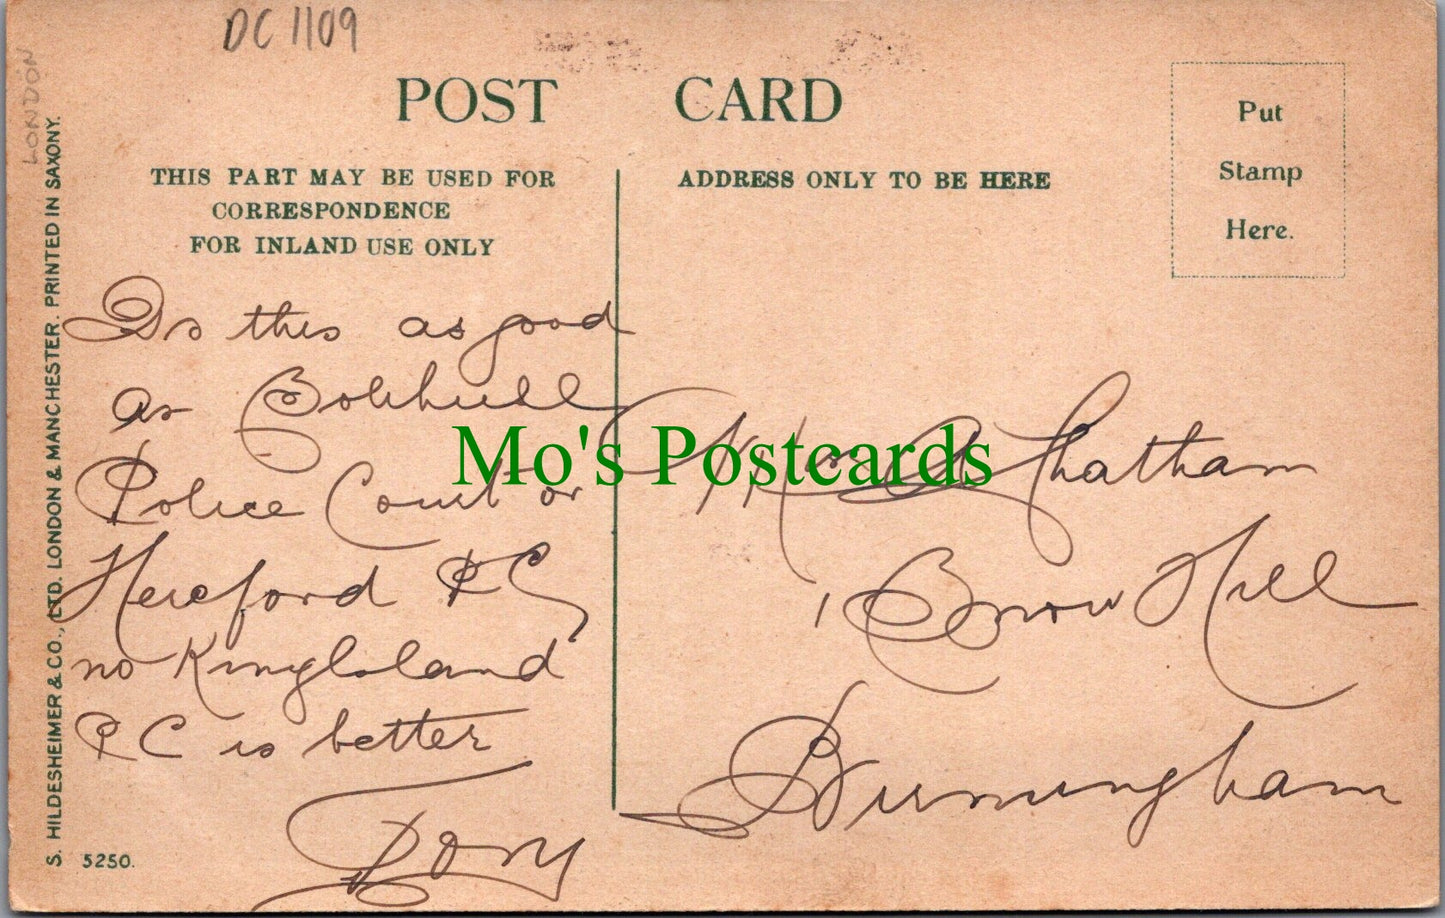 DC 1109
LONDON
POST CARD
THIS PART MAY BE USED FOR
CORRESPONDENCE
FOR INLAND USE ONLY
ADDRESS ONLY TO BE HERE
Put
Stamp
Here.
S. HILDESHEIMER & CO., LTD. LONDON & MANCHESTER. PRINTED IN SAXONY.
5250.
Is this as good
as
Police Court or
Hereford PC
no Kingsland
PC is better
Tony
Mo's Postcards
Chatham
1 Brow Hill
Birmingham